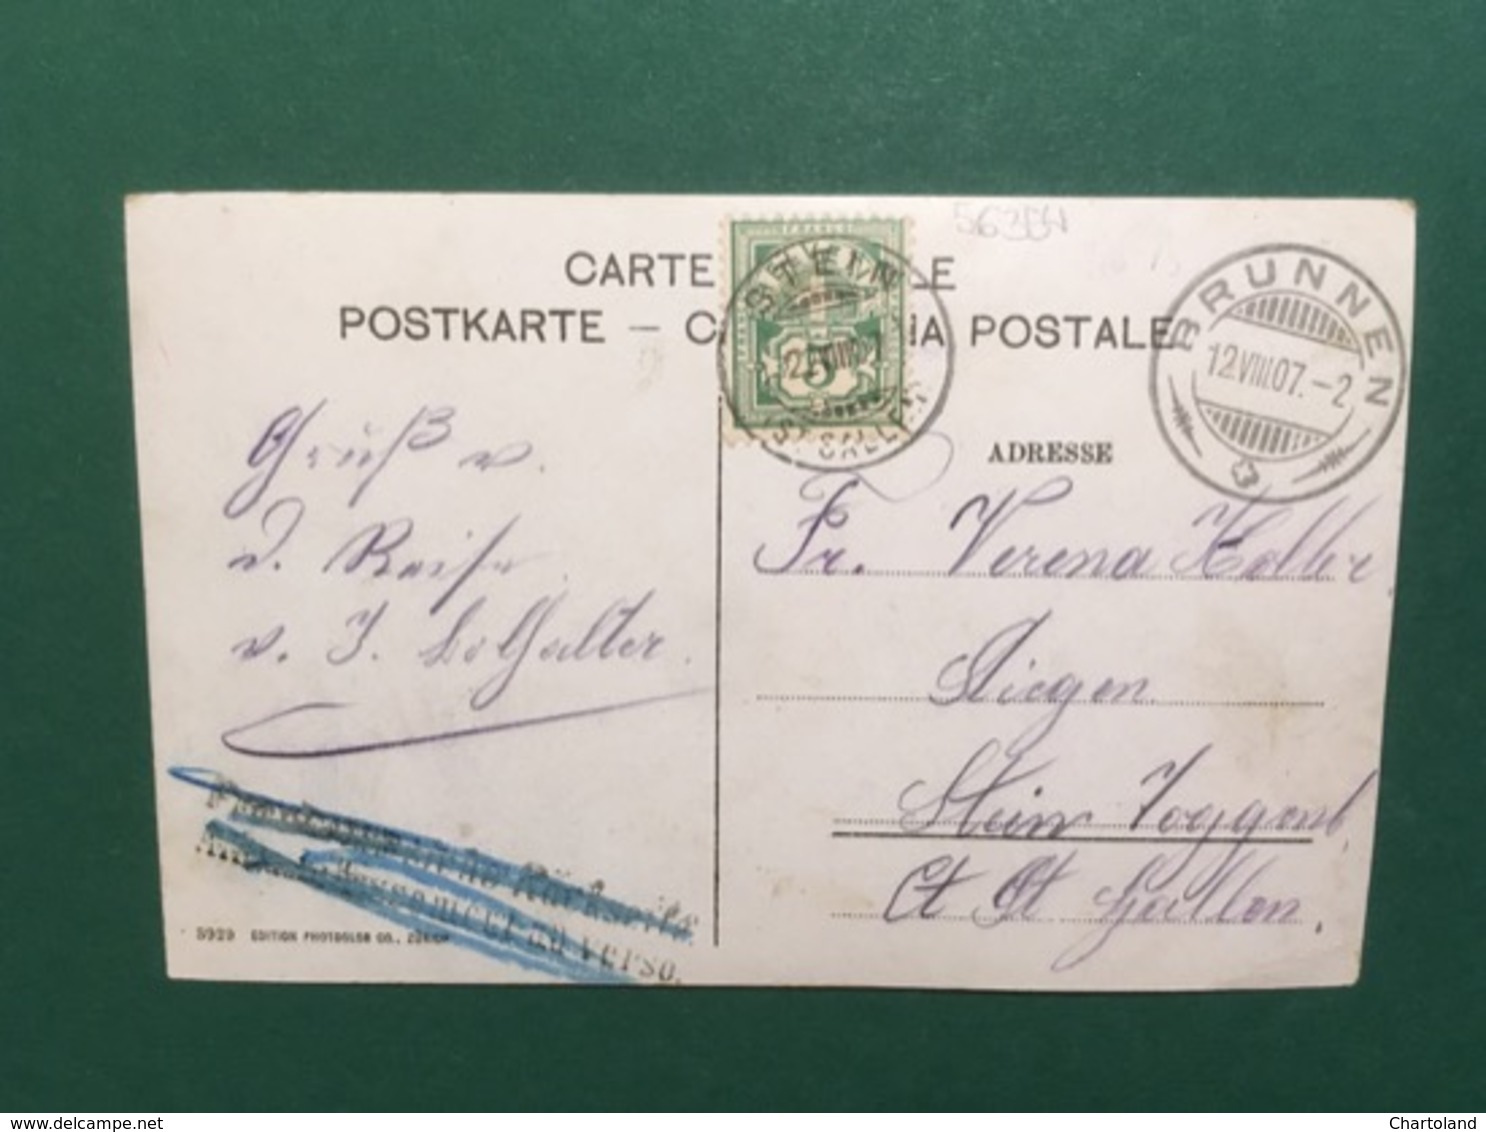 5635W
CARTE LE
POSTKARTE — C NA POSTALE
FRANCO
STEIN
12.VIII.07
5
ST. GALLEN
BRUNNEN
12.VIII.07.-2
ADRESSE
Gruß v.
d. Reise
v. J.
Fr. Verena Koller
Stein Toggenb.
Ct St Gallen.
Rückseite
au verso.
5929 EDITION PHOTOGLOB CO., ZÜRICH
www.delcampe.net
Chartoland